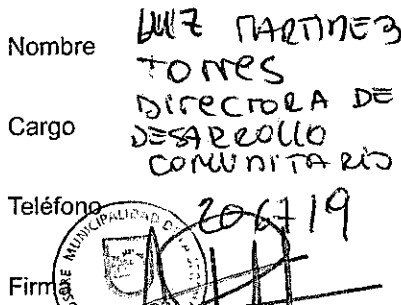 Nombre LUZ MARTINEZ
TORRES
DIRECTORA DE
Cargo DESARROLLO
COMUNITARIO
Teléfono 206719
Firma
MUNICIPALIDAD DE